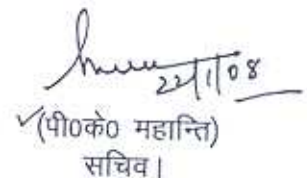 22/1/08
(पी0के0 महान्ति)
सचिव।